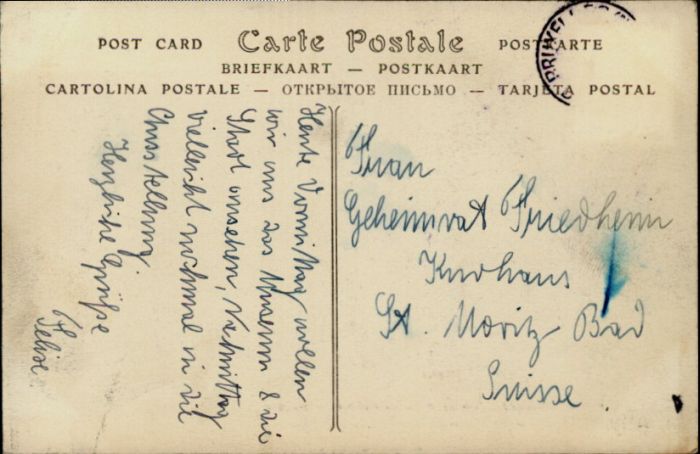 POST CARD Carte Postale POSTKARTE
BRIEFKAART — POSTKAART
CARTOLINA POSTALE — ОТКРЫТОЕ ПИСЬМО — TARJETA POSTAL
Heute Vormittag wollen
wir uns das Museum & die
Stadt ansehen, Nachmittag
vielleicht nochmal in die
Ausstellung
Herzliche Grüße
Felix
Frau
Geheimrat Friedheim
Kurhaus
St. Moritz Bad
Suisse